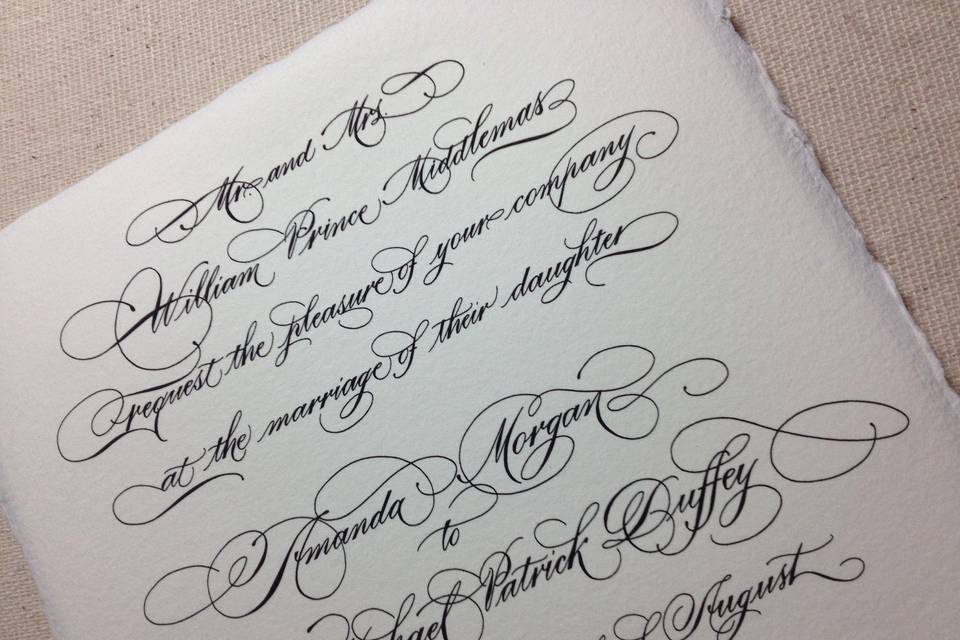 Mr. and Mrs.
William Prince Middlemas
request the pleasure of your company
at the marriage of their daughter
Amanda Morgan
to
Patrick Duffey
August